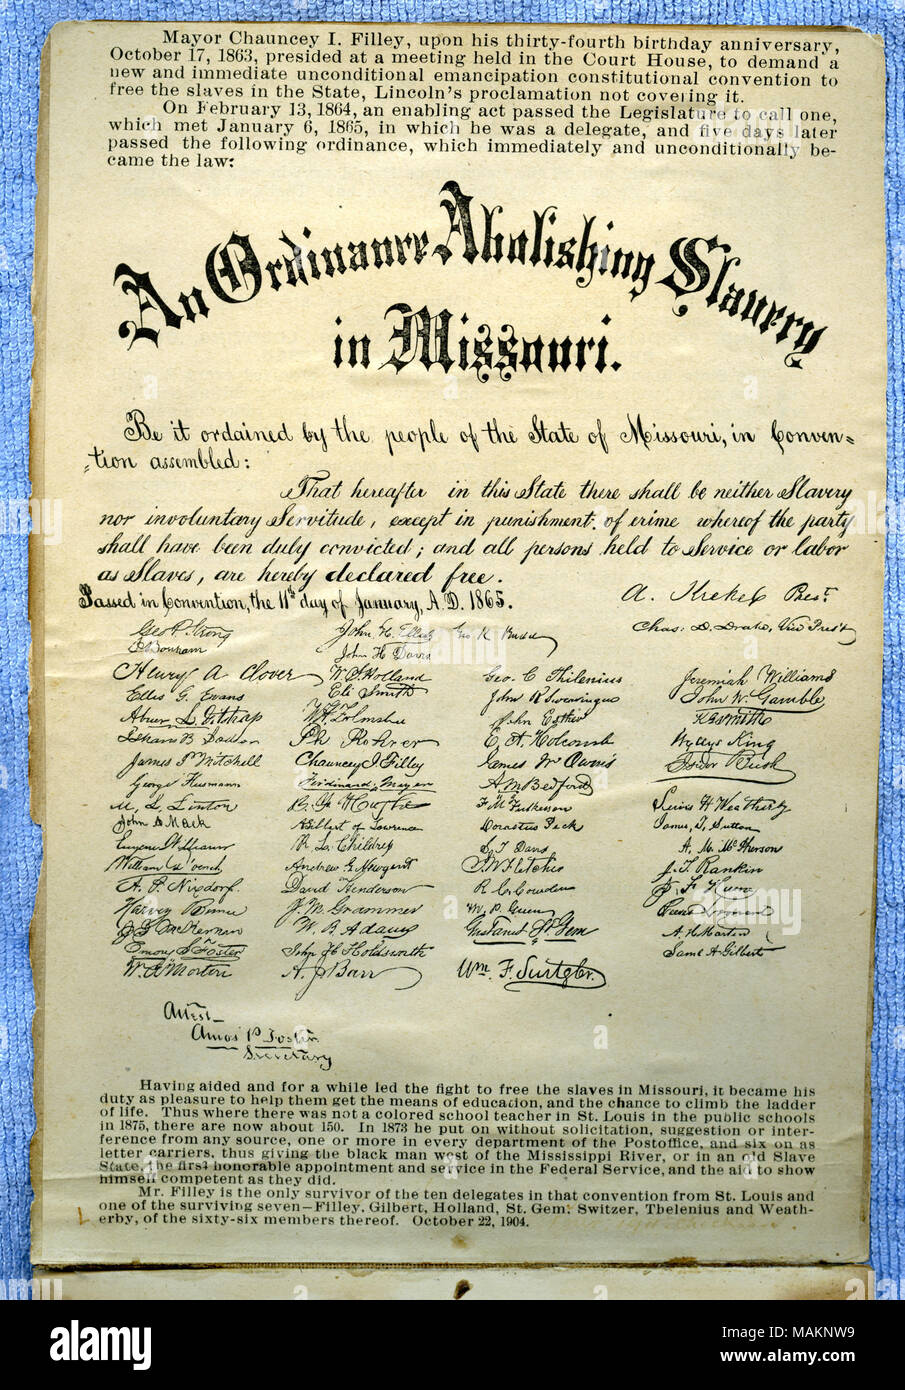 Mayor Chauncey I. Filley, upon his thirty-fourth birthday anniversary,
October 17, 1863, presided at a meeting held in the Court House, to demand a
new and immediate unconditional emancipation constitutional convention to
free the slaves in the State, Lincoln's proclamation not covering it.
On February 13, 1864, an enabling act passed the Legislature to call one,
which met January 6, 1865, in which he was a delegate, and five days later
passed the following ordinance, which immediately and unconditionally be-
came the law:
An Ordinance Abolishing Slavery
in Missouri.
Be it ordained by the people of the State of Missouri, in Conven=
=tion assembled:
That hereafter in this State there shall be neither Slavery
nor involuntary Servitude, except in punishment of crime whereof the party
shall have been duly convicted; and all persons held to Service or labor
as Slaves, are hereby declared free.
Passed in Convention, the 11th day of January, A.D. 1865.
A. Krekel Prest
Chas: D. Drake, Vice Prest
Geo P. Strong John H. Davis
Henry A Clover W. S. Holland Geo. C Thilenius Jeremiah Williams
Ellis G. Evans Eli Smith John R Swearingen John W. Gamble
Abner L. Gilstrap John Esther K G Smith
Ph Rohrer E. A. Holcomb Wyllys King
James P Mitchell Chauncey I Filley James W Owens Isidor Bush
George Husmann Ferdinand Meyer A M Bedford
M. L. Linton F. M. Fulkerson Lewis H Weatherby
John A Mack Gilbert Dorastus Peck James T. Sutton
R. L. Childress S. T. Davis A. M. McPherson
Andrew G. Newgent J. T. Rankin
A. P. Nixdorf. David Henderson R C. Cowden
Harvey Bunce J. M. Grammer W. P. Green
W. B. Adams Gustavus St. Gem A. H. Martin
Emory S Foster John H Holdsworth Saml A Gilbert
W. A Morton A. J Barr Wm. F. Switzler.
Attest
Amos P. Foster
Secretary
Having aided and for a while led the fight to free the slaves in Missouri, it became his
duty as pleasure to help them get the means of education, and the chance to climb the ladder
of life. Thus where there was not a colored school teacher in St. Louis in the public schools
in 1875, there are now about 150. In 1873 he put on without solicitation, suggestion or inter-
ference from any source, one or more in every department of the Postoffice, and six on as
letter carriers, thus giving the black man west of the Mississippi River, or in an old Slave
State, the first honorable appointment and service in the Federal Service, and the aid to show
himself competent as they did.
Mr. Filley is the only survivor of the ten delegates in that convention from St. Louis and
one of the surviving seven—Filley, Gilbert, Holland, St. Gem, Switzer, Thelenius and Weath-
erby, of the sixty-six members thereof. October 22, 1904.
alamy
Image ID: MAKNW9
www.alamy.com